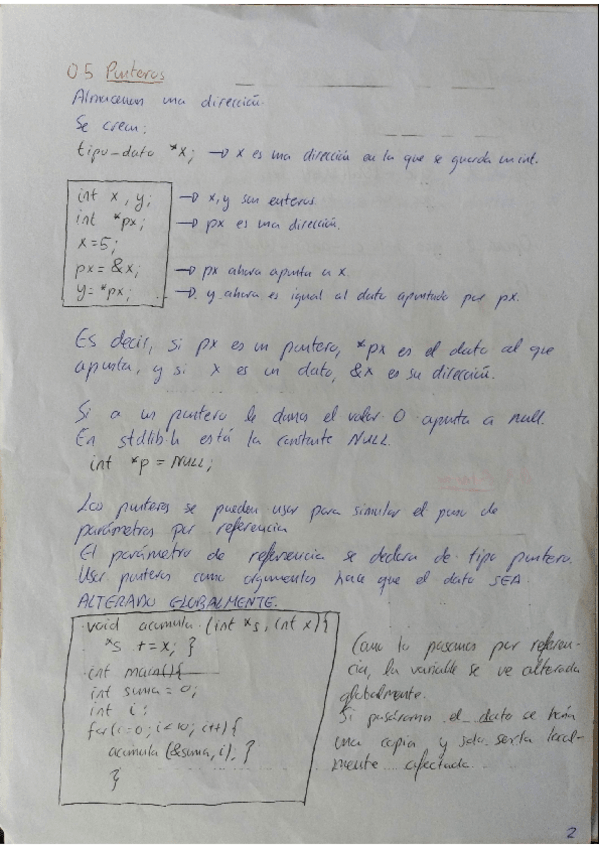 05 Punteros
Almacenan una dirección.
Se crean:
tipo-dato *x; → x es una dirección en la que se guarda un int.
int x, y; → x, y son enteros.
int *px; → px es una dirección.
x=5;
px = &x; → px ahora apunta a x.
y = *px; → y ahora es igual al dato apuntado por px.
Es decir, si px es un puntero, *px es el dato al que
apunta, y si x es un dato, &x es su dirección.
Si a un puntero le damos el valor 0 apunta a null.
En stdlib.h está la constante NULL.
int *p = NULL;
Los punteros se pueden usar para simular el paso de
parámetros por referencia
El parámetro de referencia se declara de tipo puntero.
Usar punteros como argumentos hace que el dato SEA
ALTERADO GLOBALMENTE.
void acumula (int *s, int x){
*s += x; }
int main(){
int suma = 0;
int i;
for(i=0; i<10; i++){
acumula (&suma, i); }
}
Como lo pasamos por referen-
cia, la variable se ve alterada
globalmente.
Si pasáramos el dato se haría
una copia y solo sería local-
mente afectada.
2